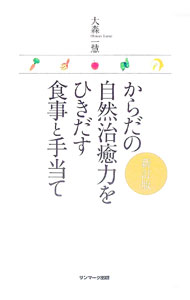 大森一慧
からだの
自然治癒力を
ひきだす
食事と手当て
サンマーク出版